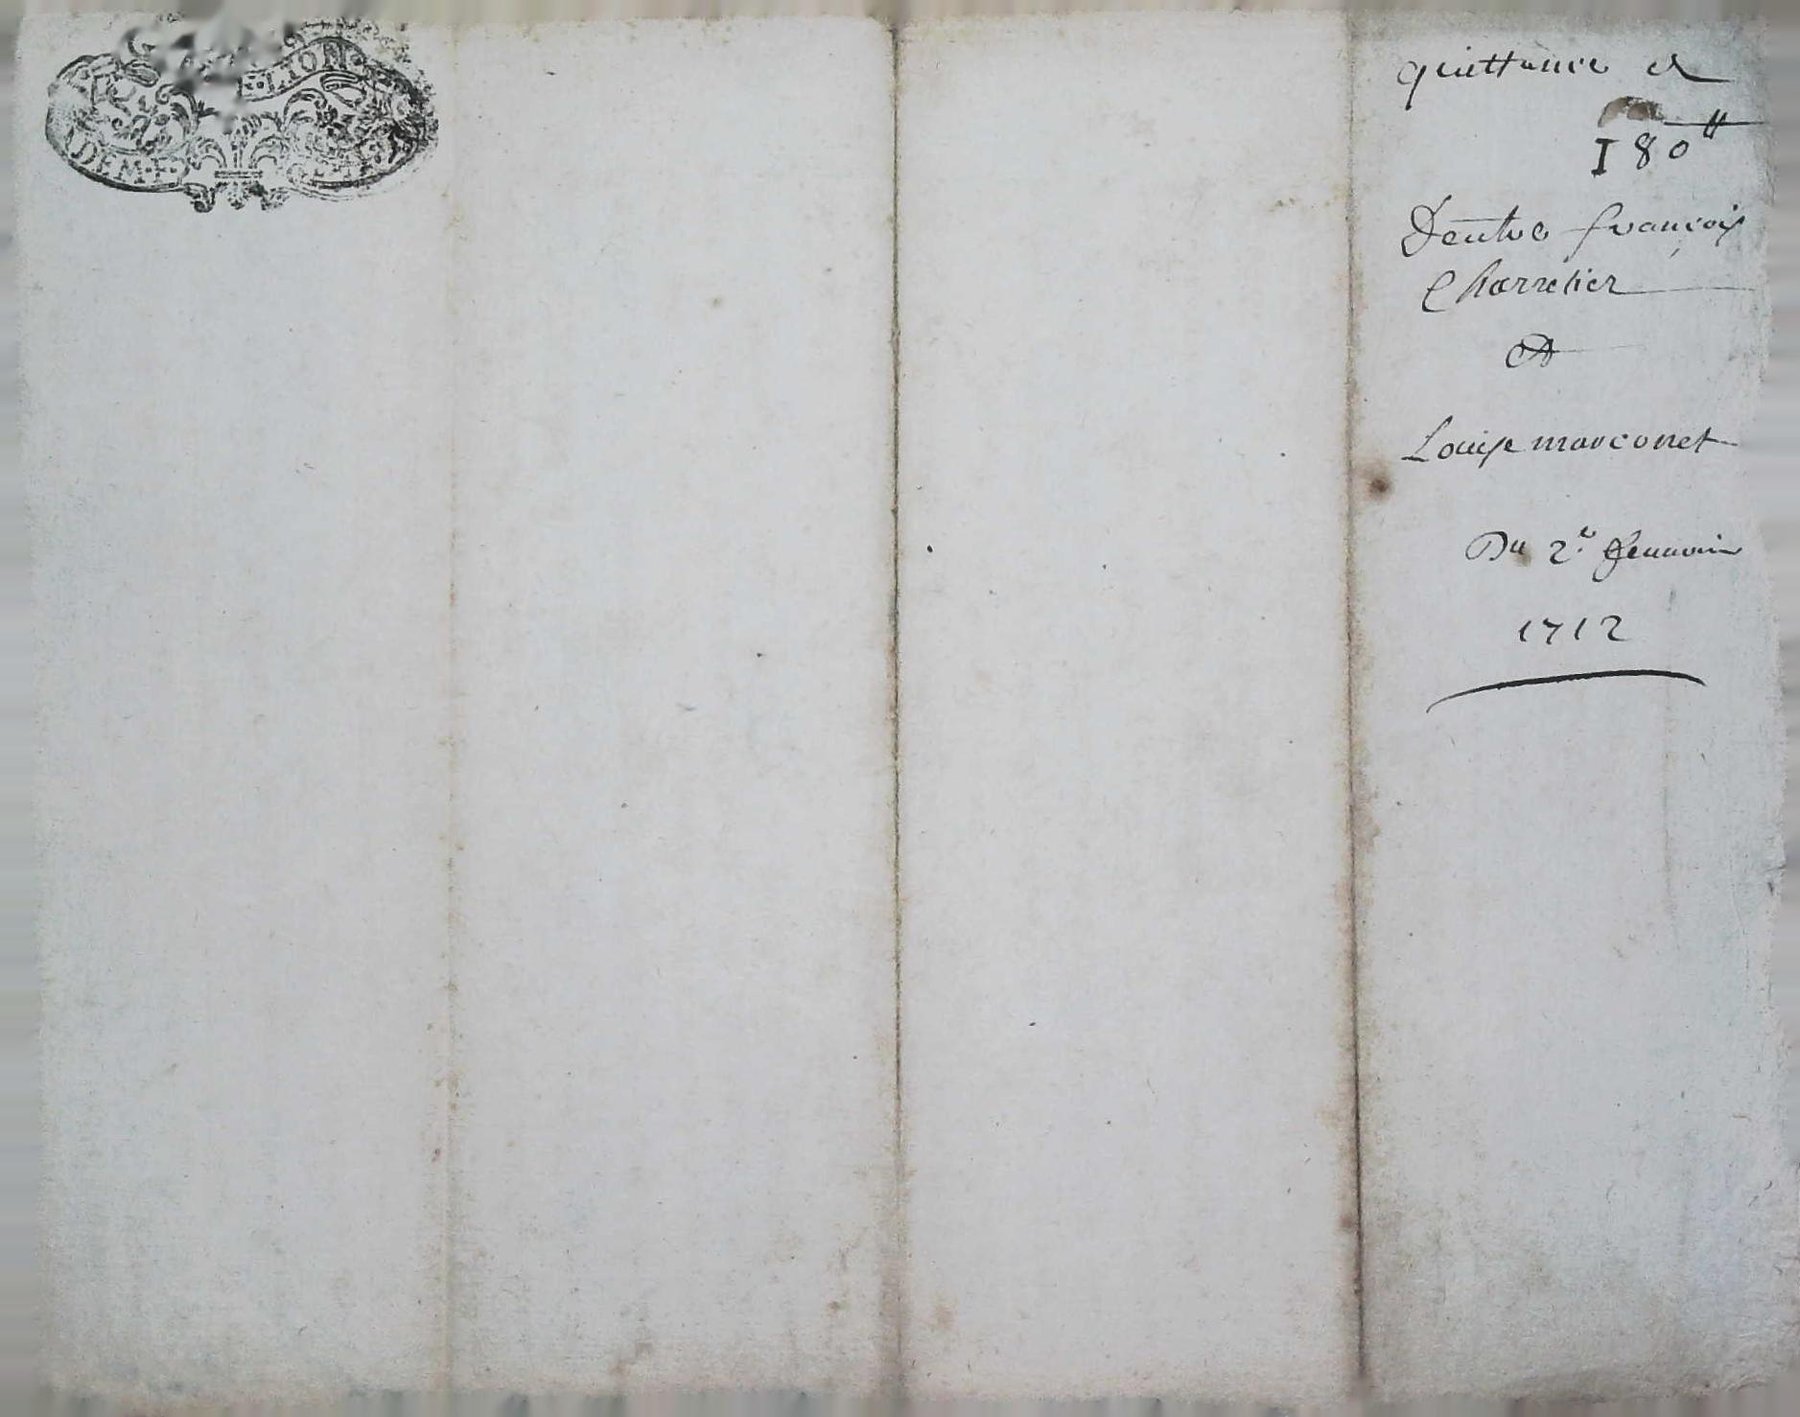 LION
DEM
quittance et
180ᵗᵗ
Dentre françois
Charretier
et
Louise marconet
Du 2ᵉ Jenuvier
1712